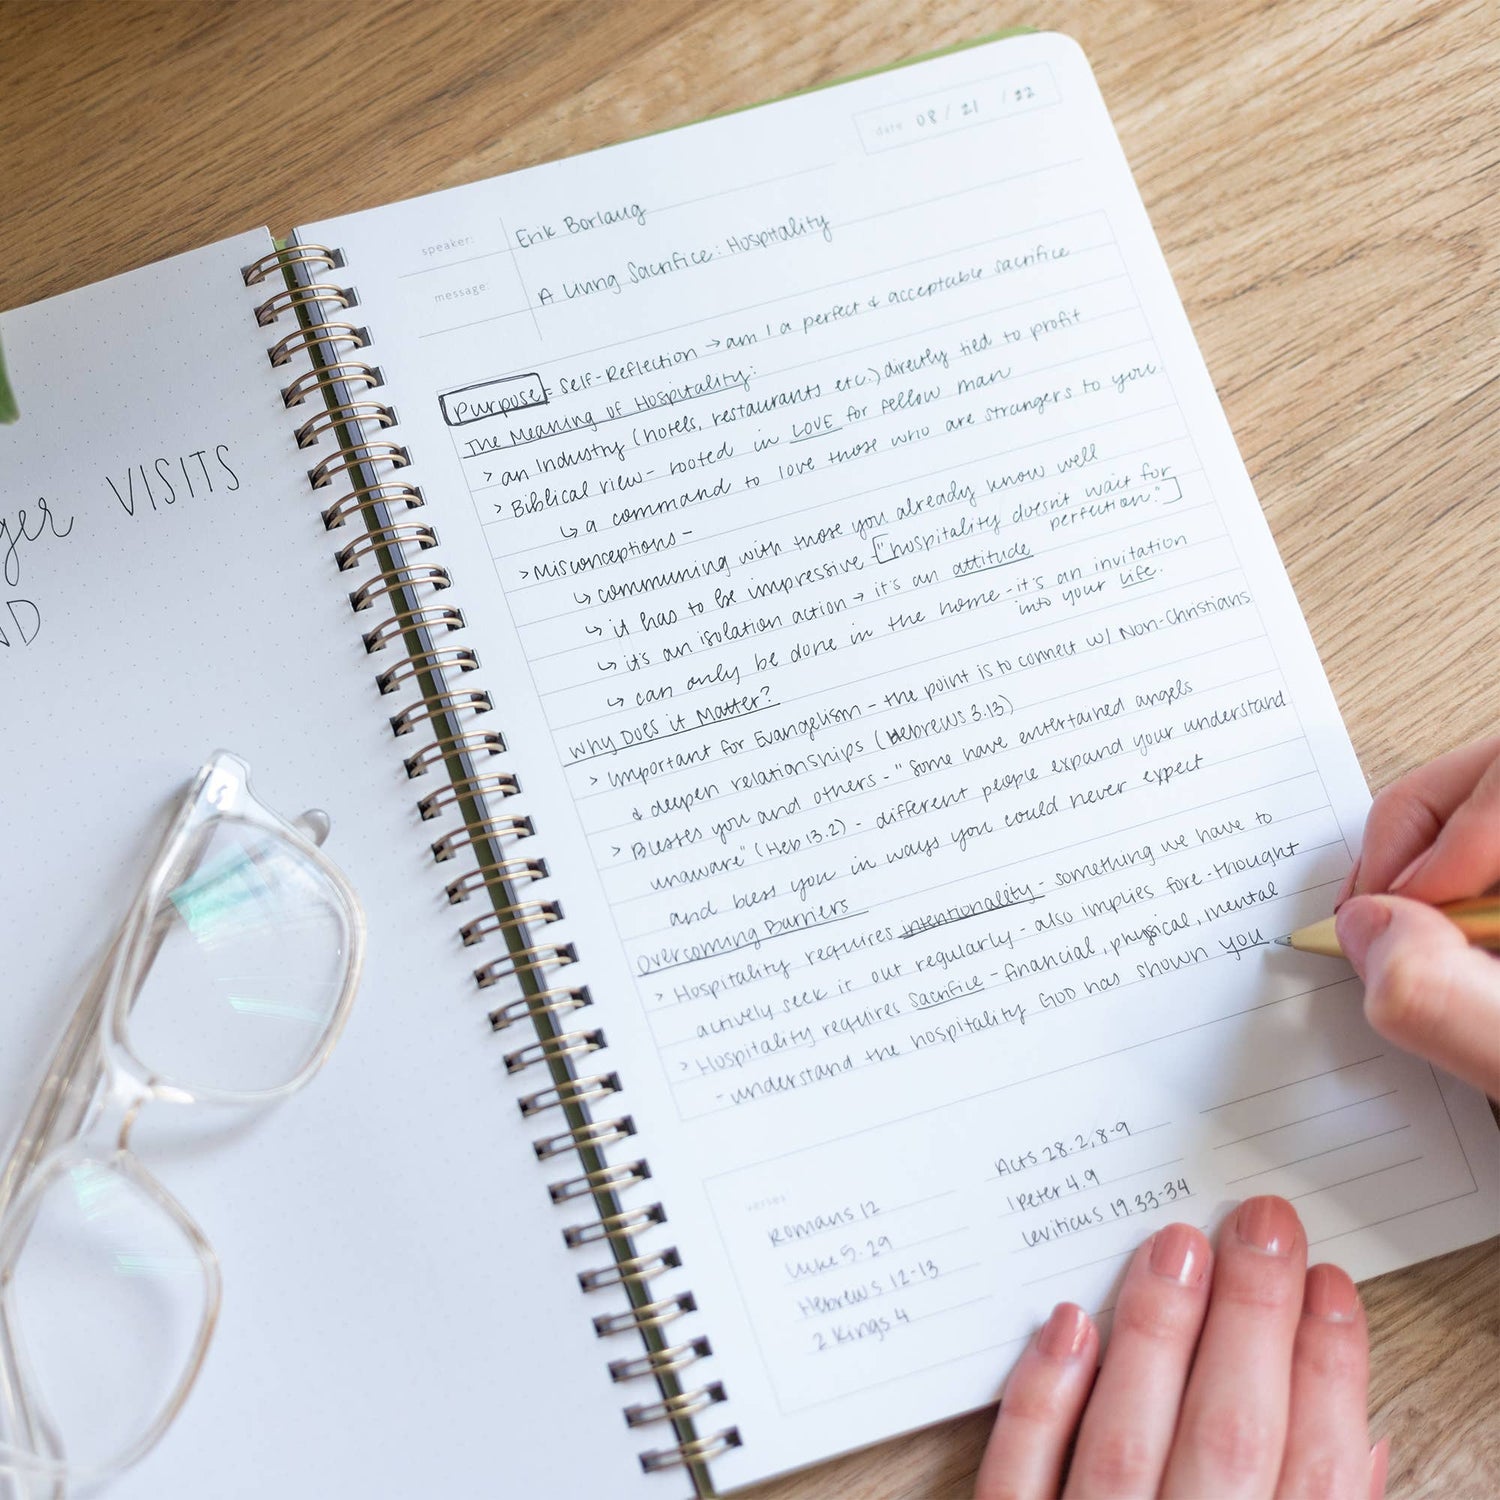 ger VISITS
ND
date 08 / 21 / 22
speaker: Erik Borlaug
message: A Living Sacrifice: Hospitality
Purpose = Self-Reflection → am I a perfect & acceptable sacrifice
The Meaning of Hospitality:
> an Industry (hotels, restaurants etc.) directly tied to profit
> Biblical view - rooted in LOVE for fellow man
↳ a command to love those who are strangers to you.
> Misconceptions -
↳ communing with those you already know well
↳ it has to be impressive - ["hospitality doesn't wait for
perfection."]
↳ it's an isolation action → it's an attitude
↳ can only be done in the home - it's an invitation
into your life.
Why Does it Matter?
> Important for Evangelism - the point is to connect w/ Non-Christians
& deepen relationships (Hebrews 3.13)
> Blesses you and others - "Some have entertained angels
unaware" (Heb 13.2) - different people expand your understand
and bless you in ways you could never expect
Overcoming Barriers
> Hospitality requires intentionality - something we have to
actively seek it out regularly - also implies fore-thought
> Hospitality requires Sacrifice - financial, physical, mental
- understand the hospitality GOD has shown you
verses
Romans 12
Luke 5.29
Hebrews 12-13
2 Kings 4
Acts 28.2, 8-9
1 Peter 4.9
Leviticus 19.33-34